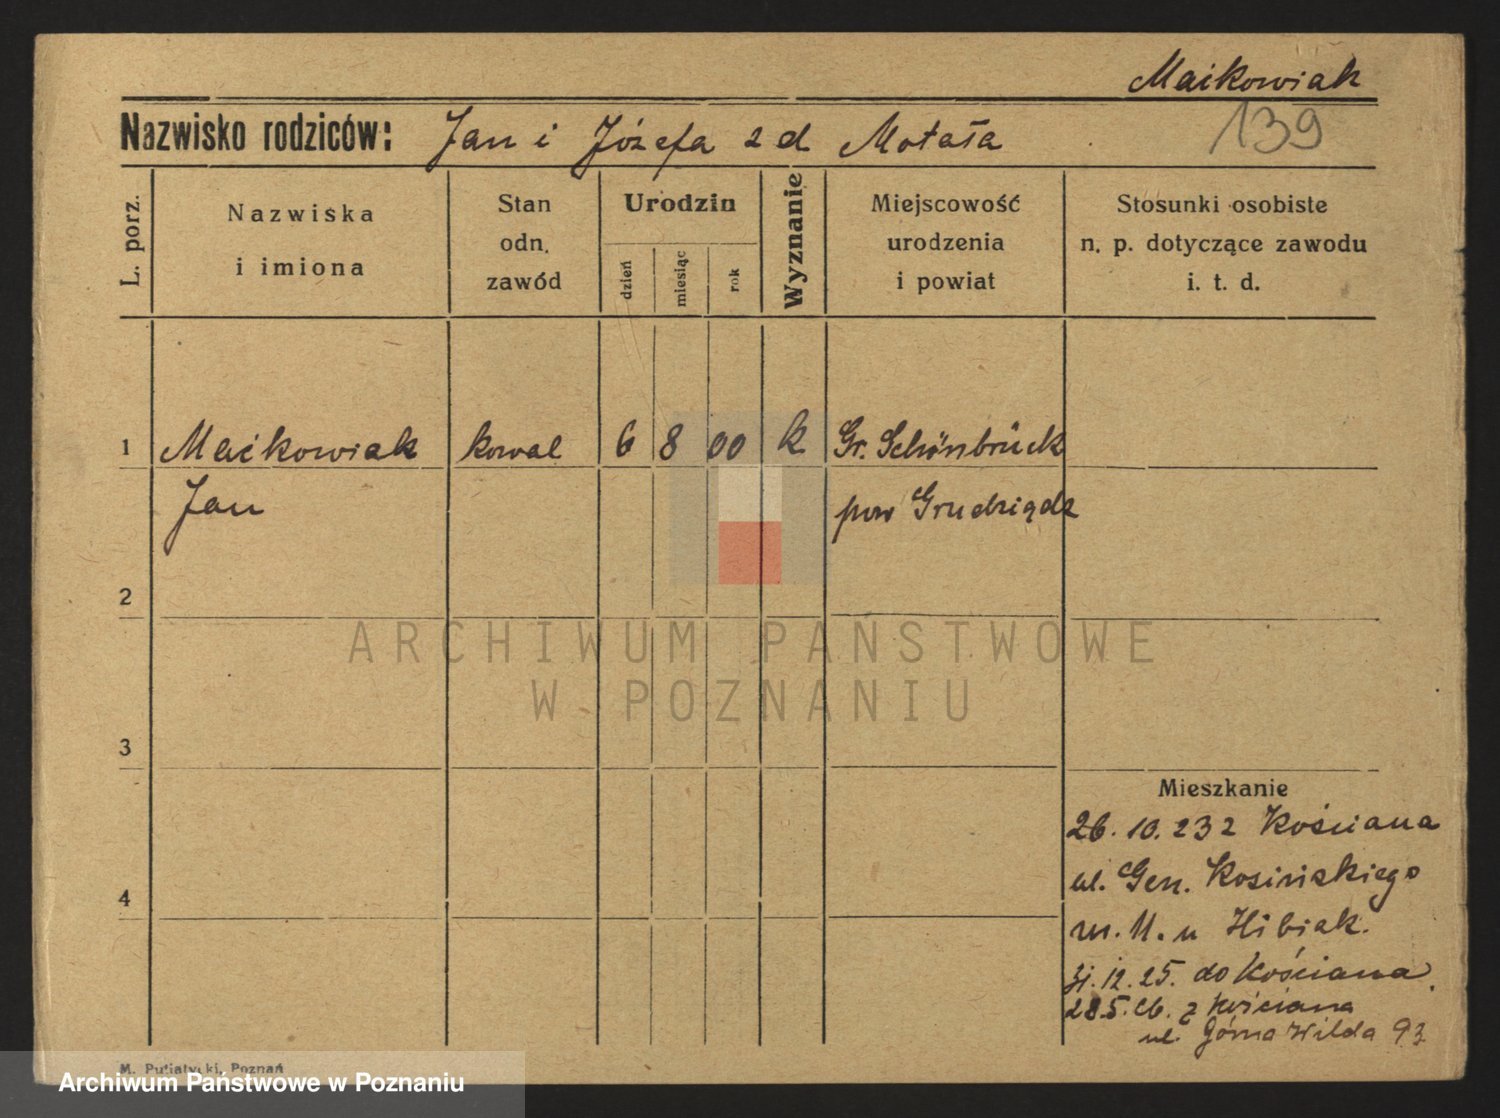 Maikowiak
139
Nazwisko rodziców: Jan i Józefa z d Motała
L. porz.
Nazwiska
i imiona
Stan
odn.
zawód
Urodzin
dzień
miesiąc
rok
Wyznanie
Miejscowość
urodzenia
i powiat
Stosunki osobiste
n. p. dotyczące zawodu
i. t. d.
1 Maćkowiak kowal 6 8 00 k Gr. Schönbrück
Jan pow Grudziądz
2
3
4
Mieszkanie
26. 10. 23 z Kościana
ul. Gen. Kosińskiego
m. 11. u Hibiak.
31. 12. 25. do Kościana.
28.5.26. z Kościana
ul. Górna Wilda 93
M. Putiatycki, Poznań
ARCHIWUM PAŃSTWOWE
W POZNANIU
Archiwum Państwowe w Poznaniu